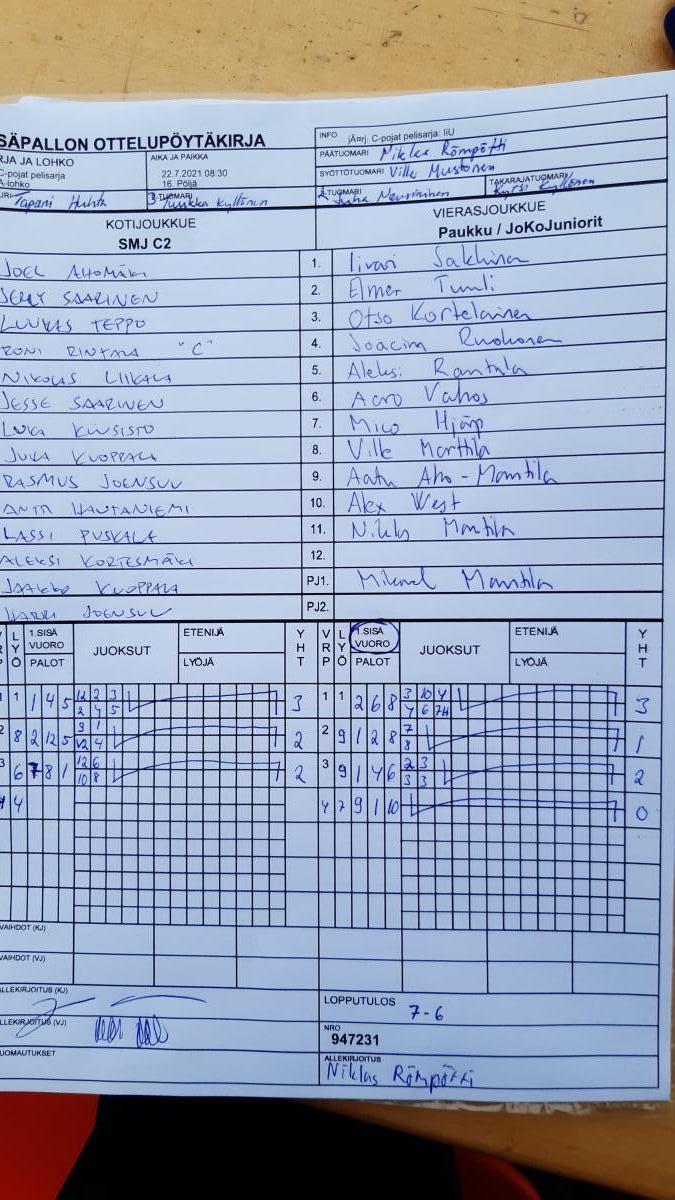 SÄPALLON OTTELUPÖYTÄKIRJA
INFO jÃ¤rj. C-pojat pelisarja: liU
RJA JA LOHKO
C-pojat pelisarja
A-lohko
AIKA JA PAIKKA
22.7.2021 08:30
16. Pöljä
PÄÄTUOMARI Niklas Römpötti
SYÖTTÖTUOMARI Ville Mustonen
Tapani Huhta
3-TUOMARI Kyllönen
2-TUOMARI Juha Neuvainen
TAKARAJATUOMARI Kyllönen
KOTIJOUKKUE
SMJ C2
VIERASJOUKKUE
Paukku / JoKoJuniorit
JOEL AHOMÄKI 1. Iivari Sakhina
JERRY SAARINEN 2. Elmer Tunli
LUUKAS TEPPO 3. Otso Kortelainen
RONI RINTALA "C" 4. Joacim Ruohonen
NIKOLAS LIIKALA 5. Aleksi Rantala
JESSE SAARINEN 6. Aaro Vahos
LUKA KIVISISTO 7. Mico Hjärp
JUKA KUOPPALA 8. Ville Marttila
RASMUS JOENSUU 9. Aatu Aho-Mantila
ANTTI HAUTANIEMI 10. Alex West
LASSI PUSKALA 11. Niklas Mantila
ALEKSI KORTESMÄKI 12.
JAAKKO KUOPPALA PJ1. Mikael Mantila
HARRI JOENSUU PJ2.
LYÖ 1.SISÄ VUORO PALOT JUOKSUT ETENIJÄ LYÖJÄ YHT VRP LYÖ 1.SISÄ VUORO PALOT JUOKSUT ETENIJÄ LYÖJÄ YHT
1 1 1 4 5 12 2 3 3 1 1 2 6 8 3 10 4 3
2 4 5 4 6 7H
2 8 2 12 5 9 1 2 2 9 1 2 8 7 1
V2 4 8
3 6 7 8 1 12 6 2 3 9 1 4 6 2 3 2
10 8 3 3
4 4 4 7 9 1 10 0
VAIHDOT (KJ)
VAIHDOT (VJ)
ALLEKIRJOITUS (KJ)
LOPPUTULOS 7-6
ALLEKIRJOITUS (VJ)
NRO
947231
UOMAUTUKSET
ALLEKIRJOITUS
Niklas Römpötti